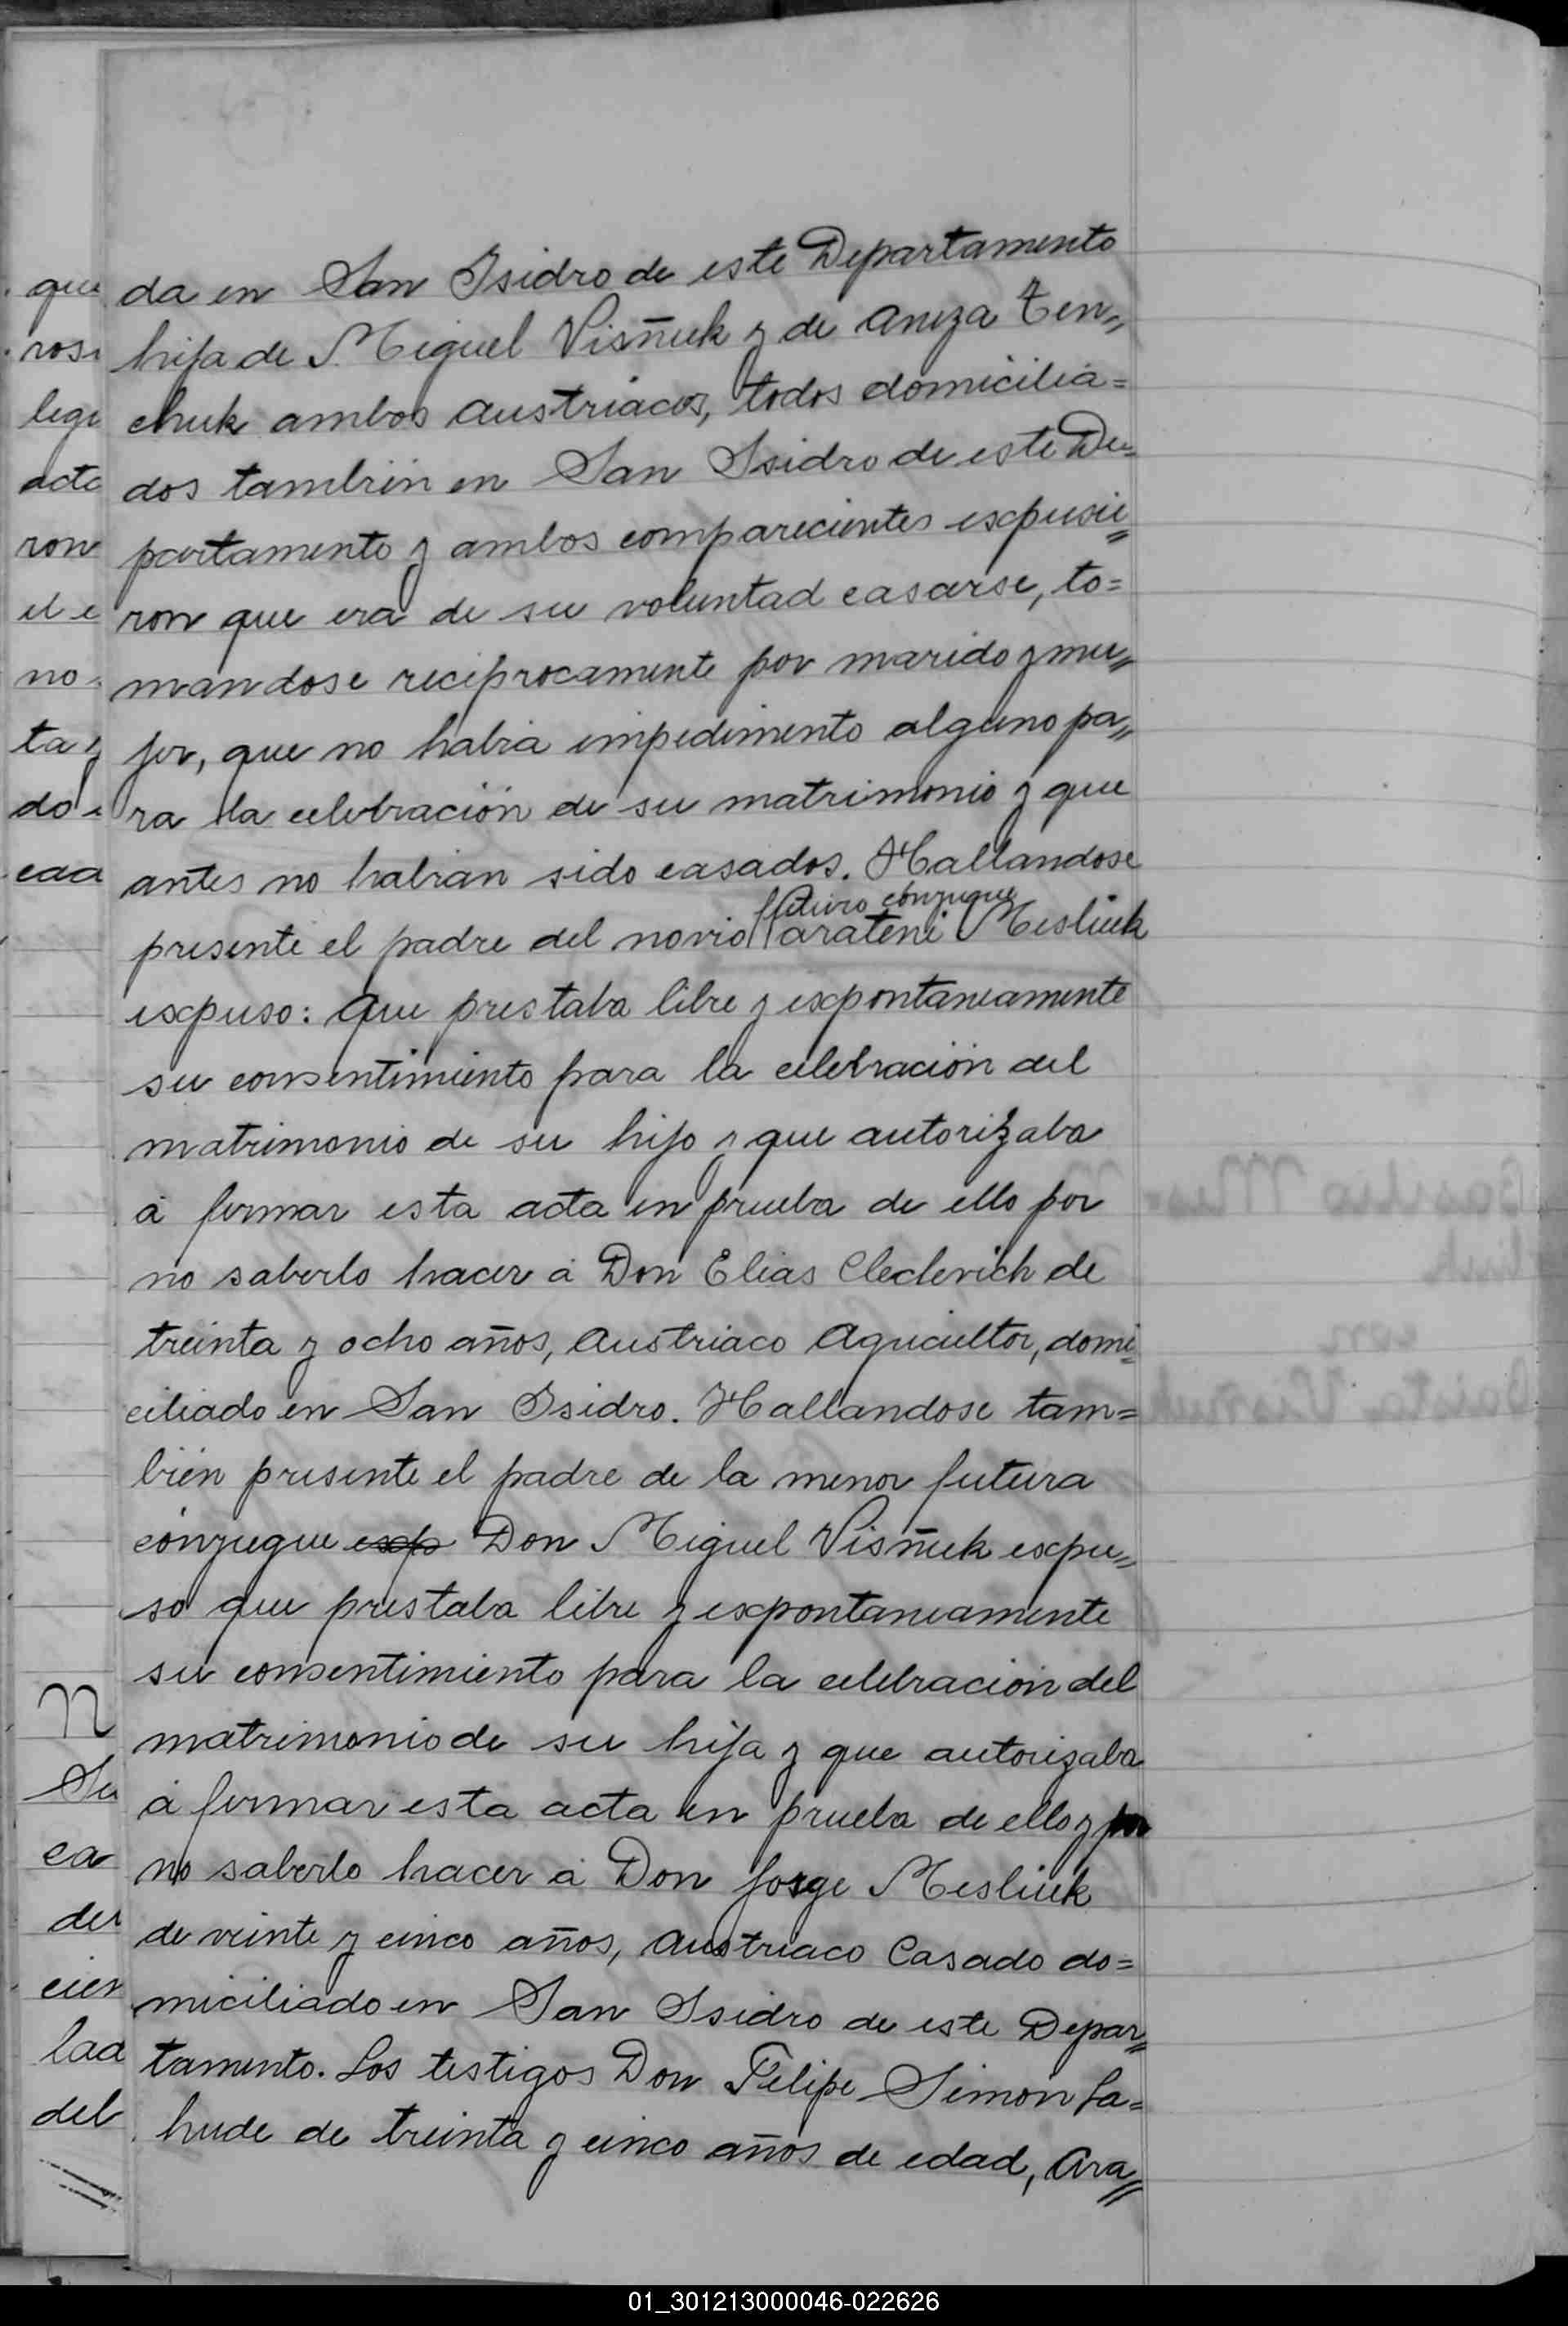 da en San Isidro de este Departamento
hija de Miguel Visñuk y de Aniza Ten„
chuk ambos Austriacos, todos domicilia=
dos tambien en San Isidro de este De=
partamento y ambos comparecientes expusie=
ron que era de su voluntad casarse, to=
mandose reciprocamente por marido y mu„
jer, que no habia impedimento alguno pa„
ra la celebración de su matrimonio y que
antes no habian sido casados. Hallandose
futuro cónyugue
presente el padre del novio Mesliuk
expuso: que prestaba libre y expontaneamente
su consentimiento para la celebración del
matrimonio de su hijo y que autorizaba
á firmar esta acta en prueba de ello por
no saberlo hacer á Don Elias Clecherich de
treinta y ocho años, Austriaco Agricultor, domi=
ciliado en San Isidro. Hallandose tam=
bién presente el padre de la menor futura
cónyugue exp Don Miguel Visñuk expu„
so que prestaba libre y expontaneamente
su consentimiento para la celebración del
matrimonio de su hija y que autorizaba
á firmar esta acta en prueba de ello y por
no saberlo hacer á Don Jorge Mesliuk
de veinte y cinco años, Austriaco Casado do=
miciliado en San Isidro de este Depar„
tamento. Los testigos Don Felipe Simon Ja=
hude de treinta y cinco años de edad, Ara„
que
rosi
legi
acto
ron
el e
no
ta y
do
caa
N
Su
ca
der
cier
lad
del
01_301213000046-022626